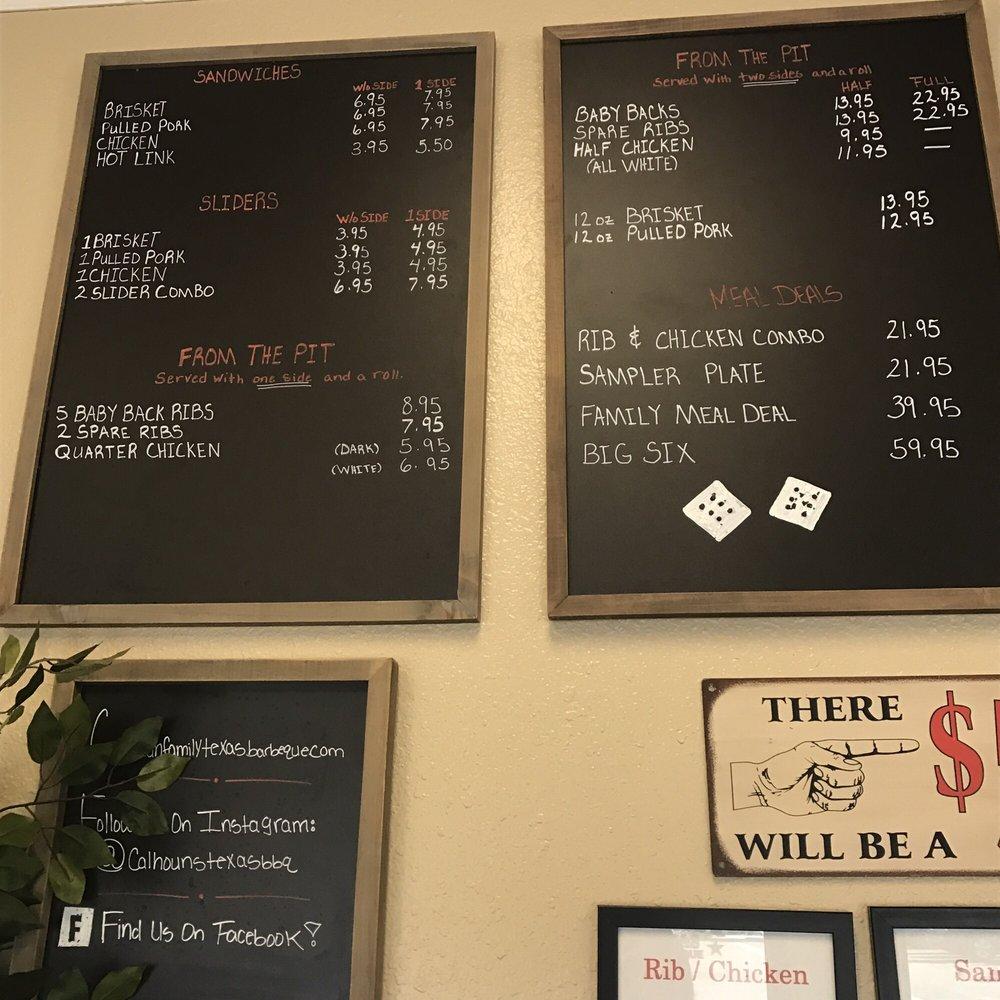 SANDWICHES
W/O SIDE 1 SIDE
BRISKET 6.95 7.95
PULLED PORK 6.95 7.95
CHICKEN 6.95 7.95
HOT LINK 3.95 5.50
SLIDERS
W/O SIDE 1 SIDE
1 BRISKET 3.95 4.95
1 PULLED PORK 3.95 4.95
1 CHICKEN 3.95 4.95
2 SLIDER COMBO 6.95 7.95
FROM THE PIT
Served with one side and a roll.
5 BABY BACK RIBS 8.95
2 SPARE RIBS 7.95
QUARTER CHICKEN (DARK) 5.95
(WHITE) 6.95
FROM THE PIT
Served with two sides and a roll
HALF FULL
BABY BACKS 13.95 22.95
SPARE RIBS 13.95 22.95
HALF CHICKEN 9.95 —
(ALL WHITE) 11.95 —
12 oz BRISKET 13.95
12 oz PULLED PORK 12.95
MEAL DEALS
RIB & CHICKEN COMBO 21.95
SAMPLER PLATE 21.95
FAMILY MEAL DEAL 39.95
BIG SIX 59.95
familytexasbarbeque.com
On Instagram:
@Calhounstexasbbq
F Find Us On Facebook!
THERE $
WILL BE A
Rib / Chicken